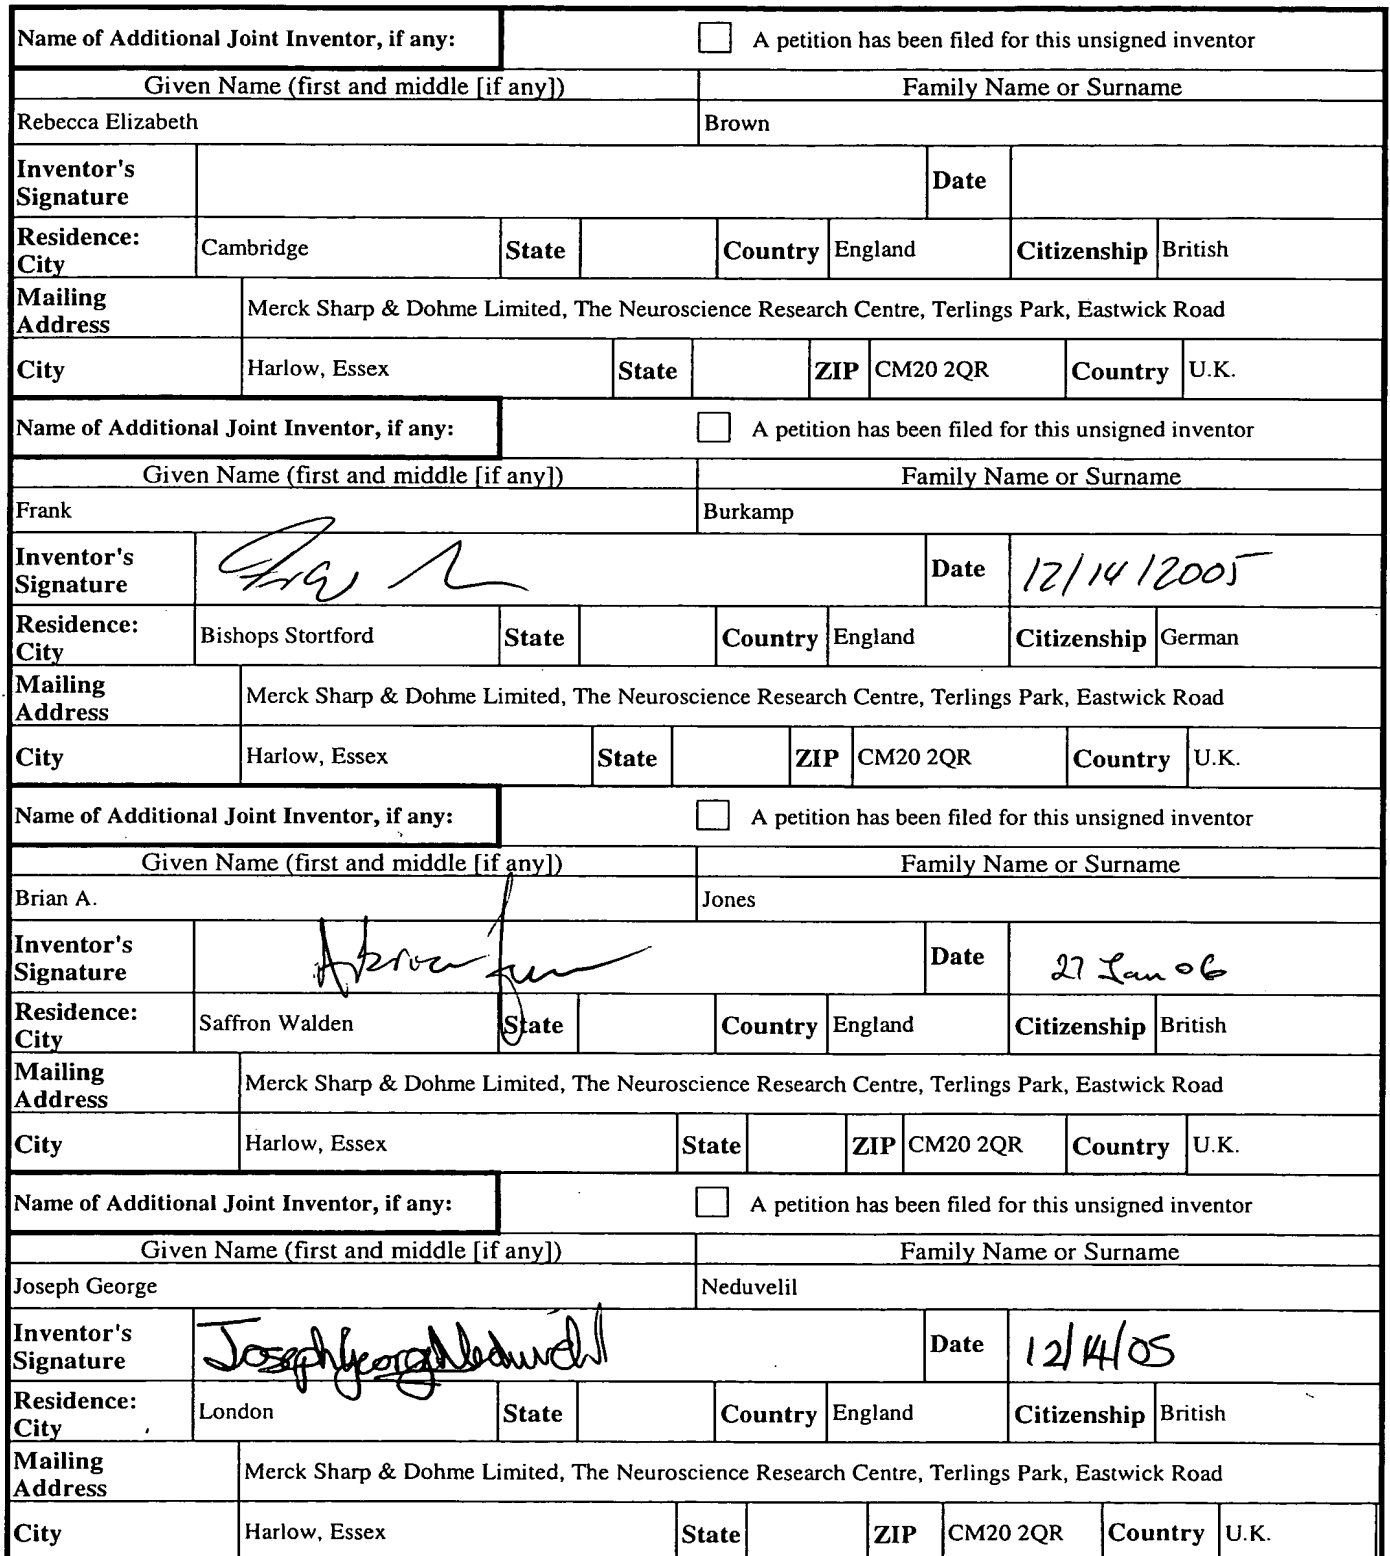 Name of Additional Joint Inventor, if any: A petition has been filed for this unsigned inventor
Given Name (first and middle [if any]) Family Name or Surname
Rebecca Elizabeth Brown
Inventor's Signature Date
Residence: City Cambridge State Country England Citizenship British
Mailing Address Merck Sharp & Dohme Limited, The Neuroscience Research Centre, Terlings Park, Eastwick Road
City Harlow, Essex State ZIP CM20 2QR Country U.K.
Name of Additional Joint Inventor, if any: A petition has been filed for this unsigned inventor
Given Name (first and middle [if any]) Family Name or Surname
Frank Burkamp
Inventor's Signature Date 12/14/2005
Residence: City Bishops Stortford State Country England Citizenship German
Mailing Address Merck Sharp & Dohme Limited, The Neuroscience Research Centre, Terlings Park, Eastwick Road
City Harlow, Essex State ZIP CM20 2QR Country U.K.
Name of Additional Joint Inventor, if any: A petition has been filed for this unsigned inventor
Given Name (first and middle [if any]) Family Name or Surname
Brian A. Jones
Inventor's Signature Date 27 Jan 06
Residence: City Saffron Walden State Country England Citizenship British
Mailing Address Merck Sharp & Dohme Limited, The Neuroscience Research Centre, Terlings Park, Eastwick Road
City Harlow, Essex State ZIP CM20 2QR Country U.K.
Name of Additional Joint Inventor, if any: A petition has been filed for this unsigned inventor
Given Name (first and middle [if any]) Family Name or Surname
Joseph George Neduvelil
Inventor's Signature Joseph George Neduvelil Date 12/14/05
Residence: City London State Country England Citizenship British
Mailing Address Merck Sharp & Dohme Limited, The Neuroscience Research Centre, Terlings Park, Eastwick Road
City Harlow, Essex State ZIP CM20 2QR Country U.K.